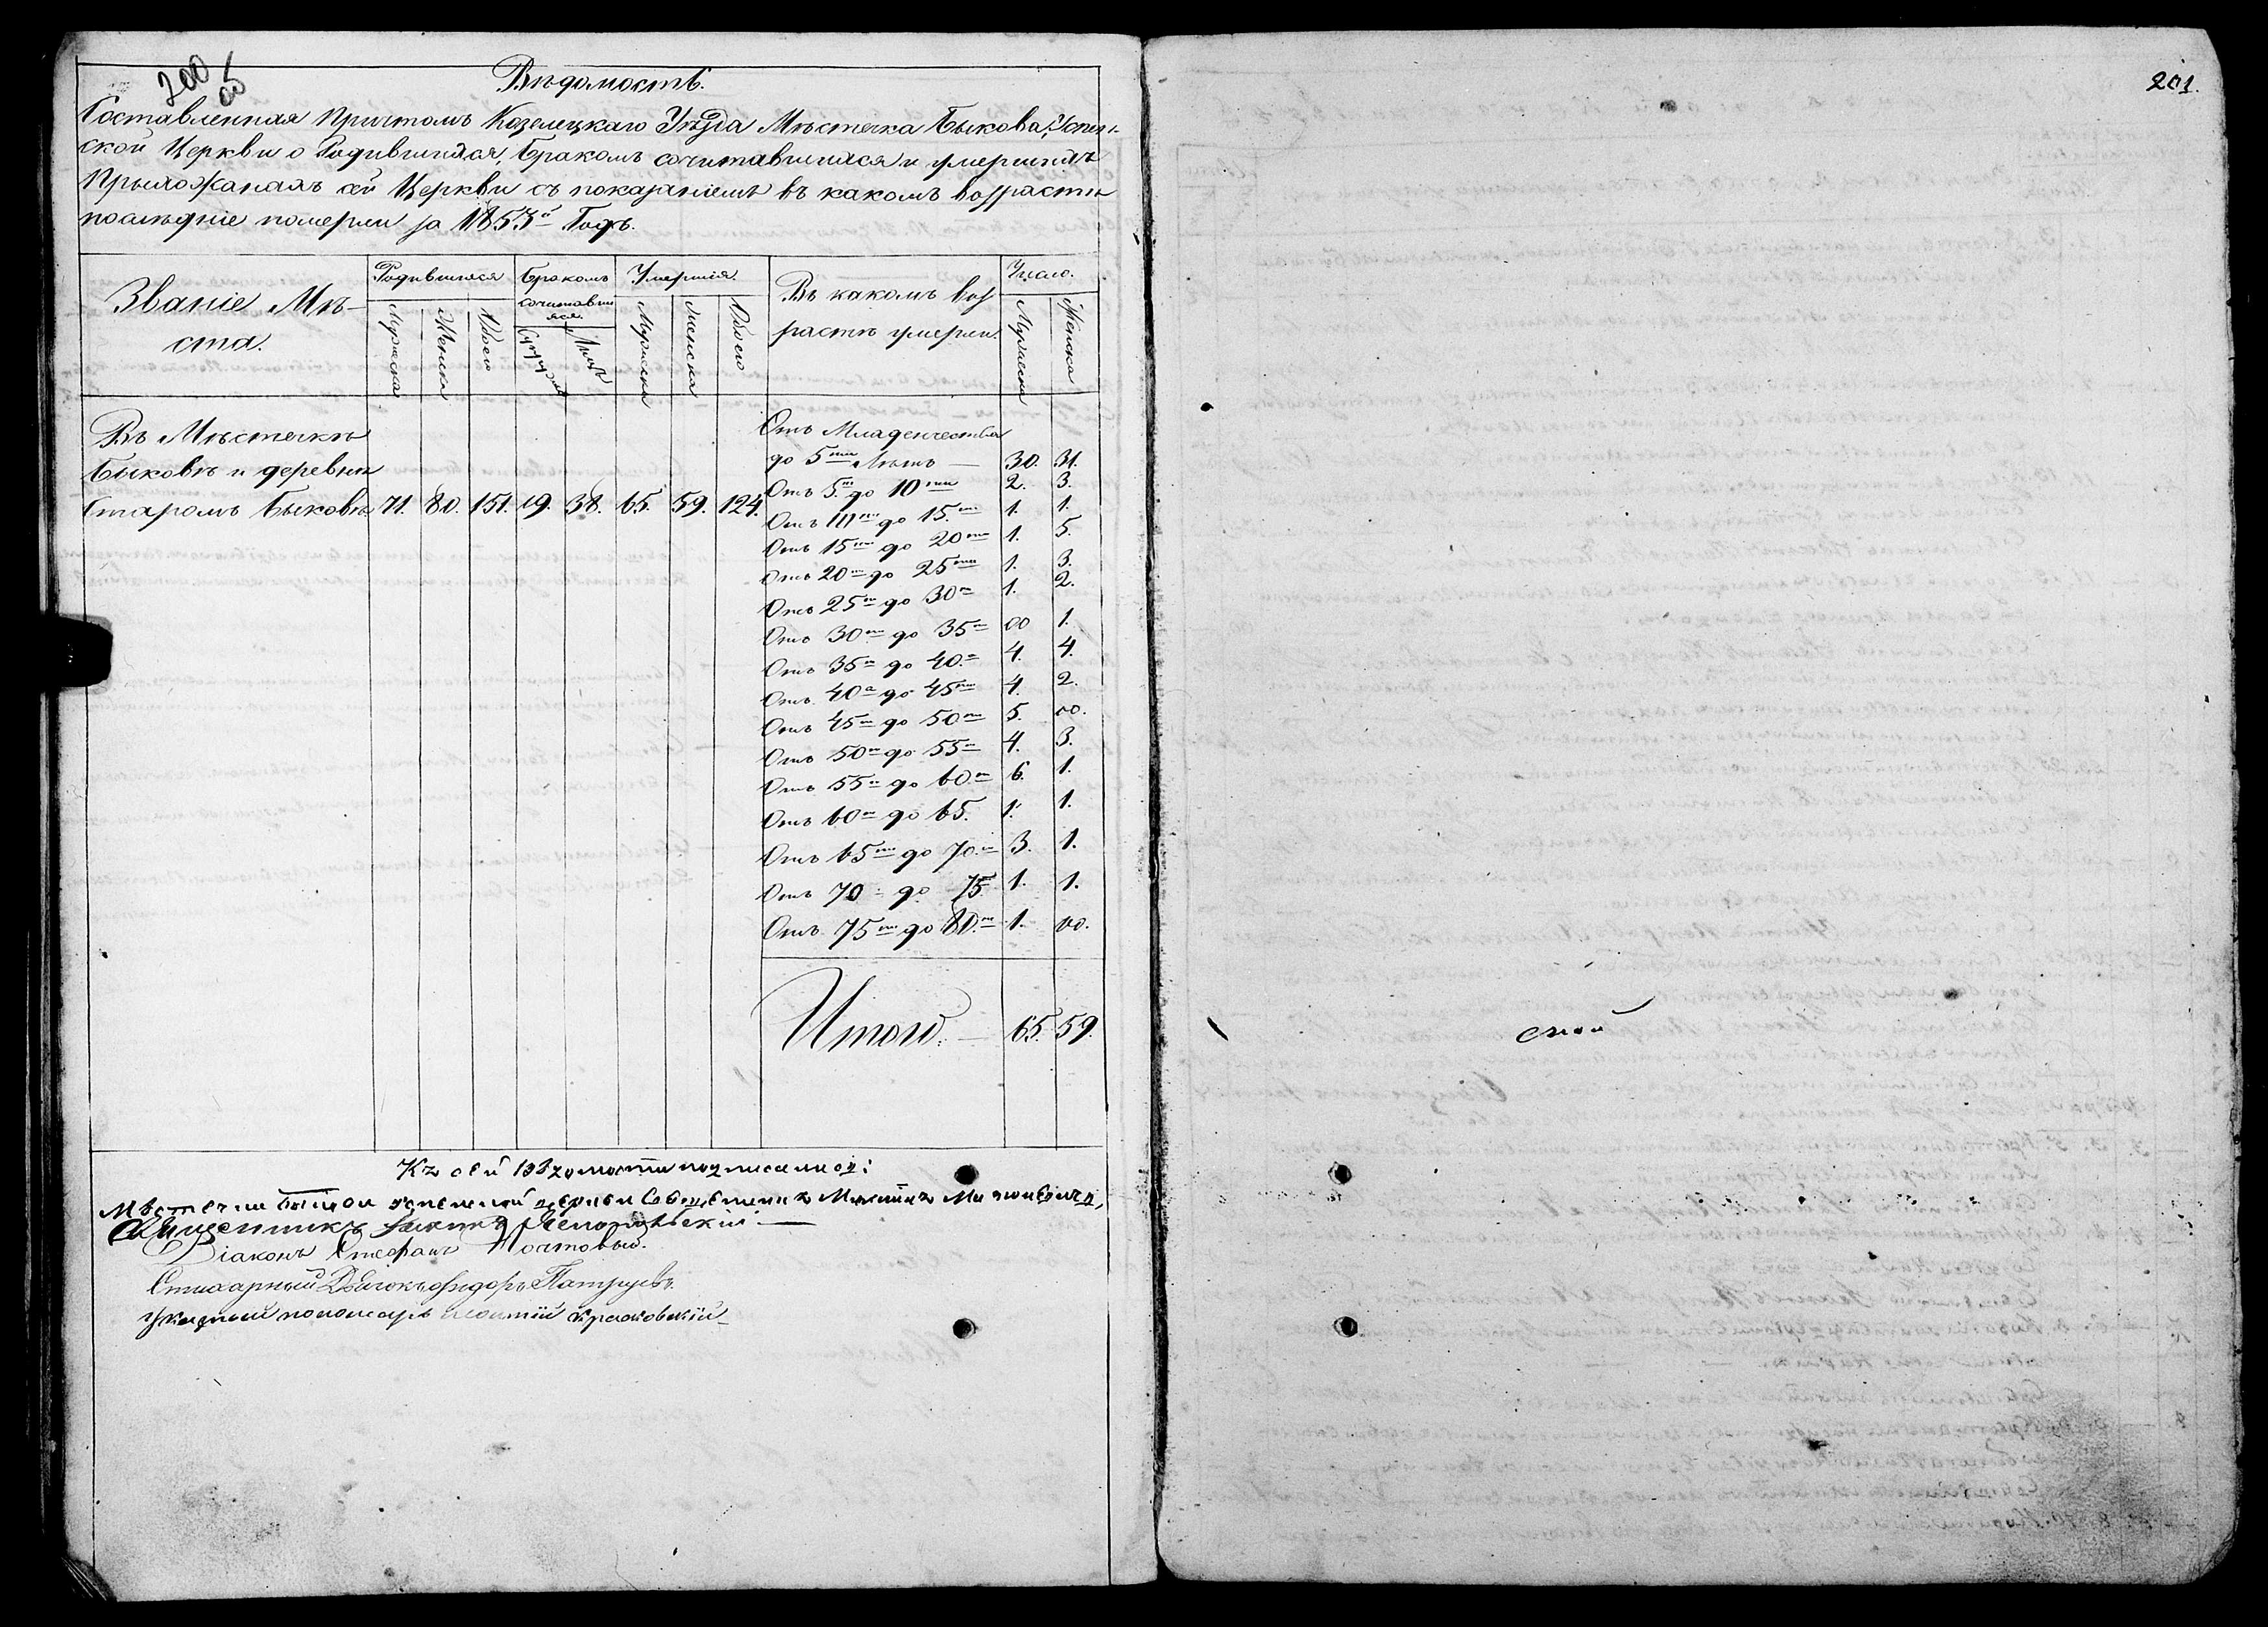 200
об
Вѣдомость.
Составленная Причтомъ Козелецкаго Уѣзда Мѣстечка Быкова, Успен-
ской Церкви о Родившихся, Бракомъ сочитавшихся и умершихъ
Прыхожанахъ сей Церкви съ показаніемъ въ какомъ возрастѣ
послѣдніе померли за 1853й Годъ.
Званіе Мѣ-
ста.
Родившихся
Мужеска
Женска
Обоего
Бракомъ
сочитавши
яся.
Супруж
Лицъ
Умершія.
Мужеска
Женска
Обоего
Въ какомъ воз
растѣ умерли.
Число.
Мужеска
Женска
Въ Мѣстечкѣ
Быковѣ и деревни
Старомъ Быковѣ. 71. 80. 151. 19. 38. 65. 59. 124.
Отъ Младенчества
до 5ти Лѣтъ — 30. 31.
Отъ 5. до 10ти 2. 3.
Отъ 10ти до 15.ти 1. 1.
Отъ 15ти до 20ти 1. 5.
Отъ 20ти до 25ти 1. 3.
Отъ 25ти до 30ти 1. 2.
Отъ 30ти до 35ти 00 1.
Отъ 35ти до 40.ка 4. 4.
Отъ 40а до 45ти 4. 2.
Отъ 45ти до 50ти 5. 00.
Отъ 50ти до 55ти 4. 3.
Отъ 55ти до 60.ти 6. 1.
Отъ 60ти до 65. 1. 1.
Отъ 65ти до 70.ти 3. 1.
Отъ 70 до 75. 1. 1.
Отъ 75ти до 80.ти 1. 00.
Итого. — 65. 59.
Къ сей вѣдомости подписалися:
Мѣстечка Быкова Успенской церкви Священникъ
Священникъ
Діаконъ Стефанъ Постовый.
Стихарный Дьячокъ Федоръ
указный пономарь
201.